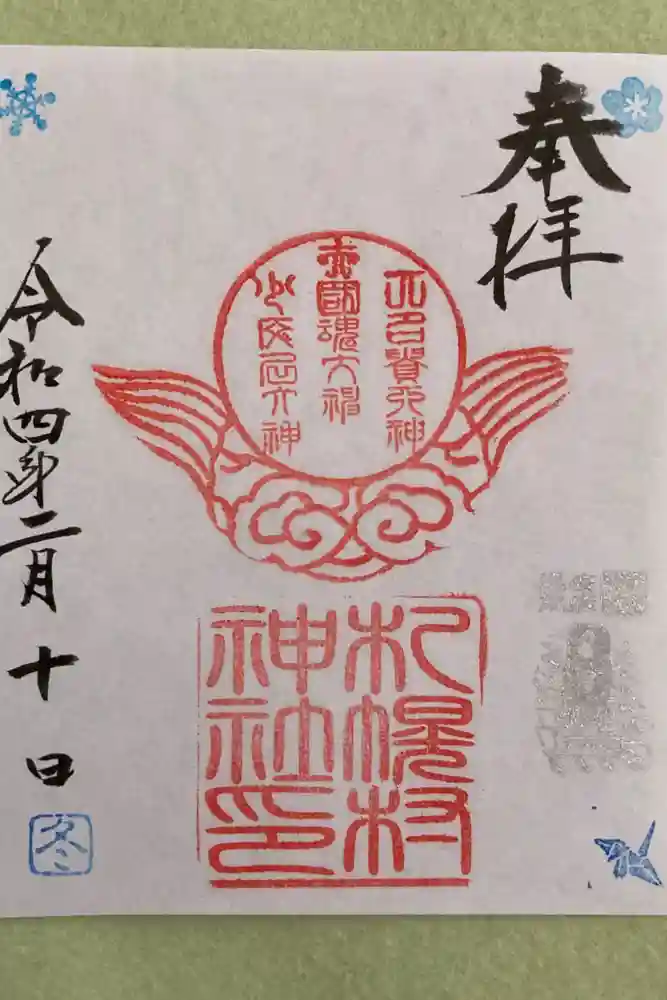 奉拝
大己貴大神
大國魂大神
少彦名大神
札幌村
神社印
令和四年二月十日
冬